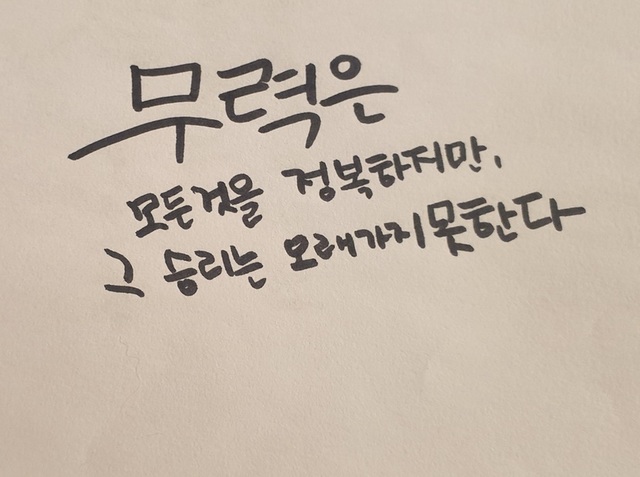 무력은
모든것을 정복하지만,
그 승리는 오래가지못한다